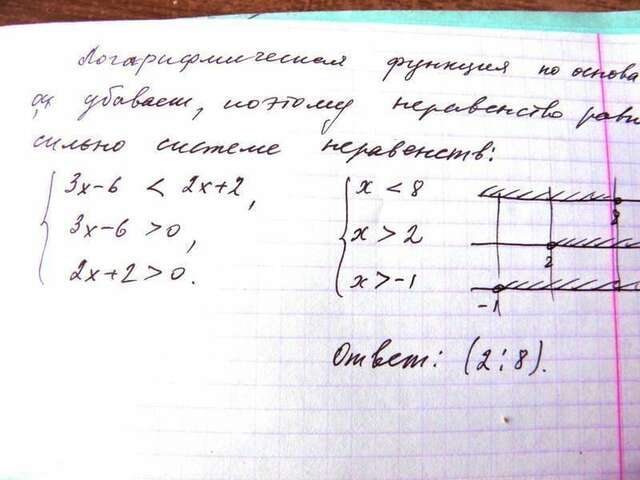 Логарифмическая функция по основа
убывает, поэтому неравенство равно
сильно системе неравенств:
3x-6 < 2x+2,
3x-6 >0,
2x+2>0.
x < 8
x > 2
x >-1
8
2
-1
Ответ: (2;8).